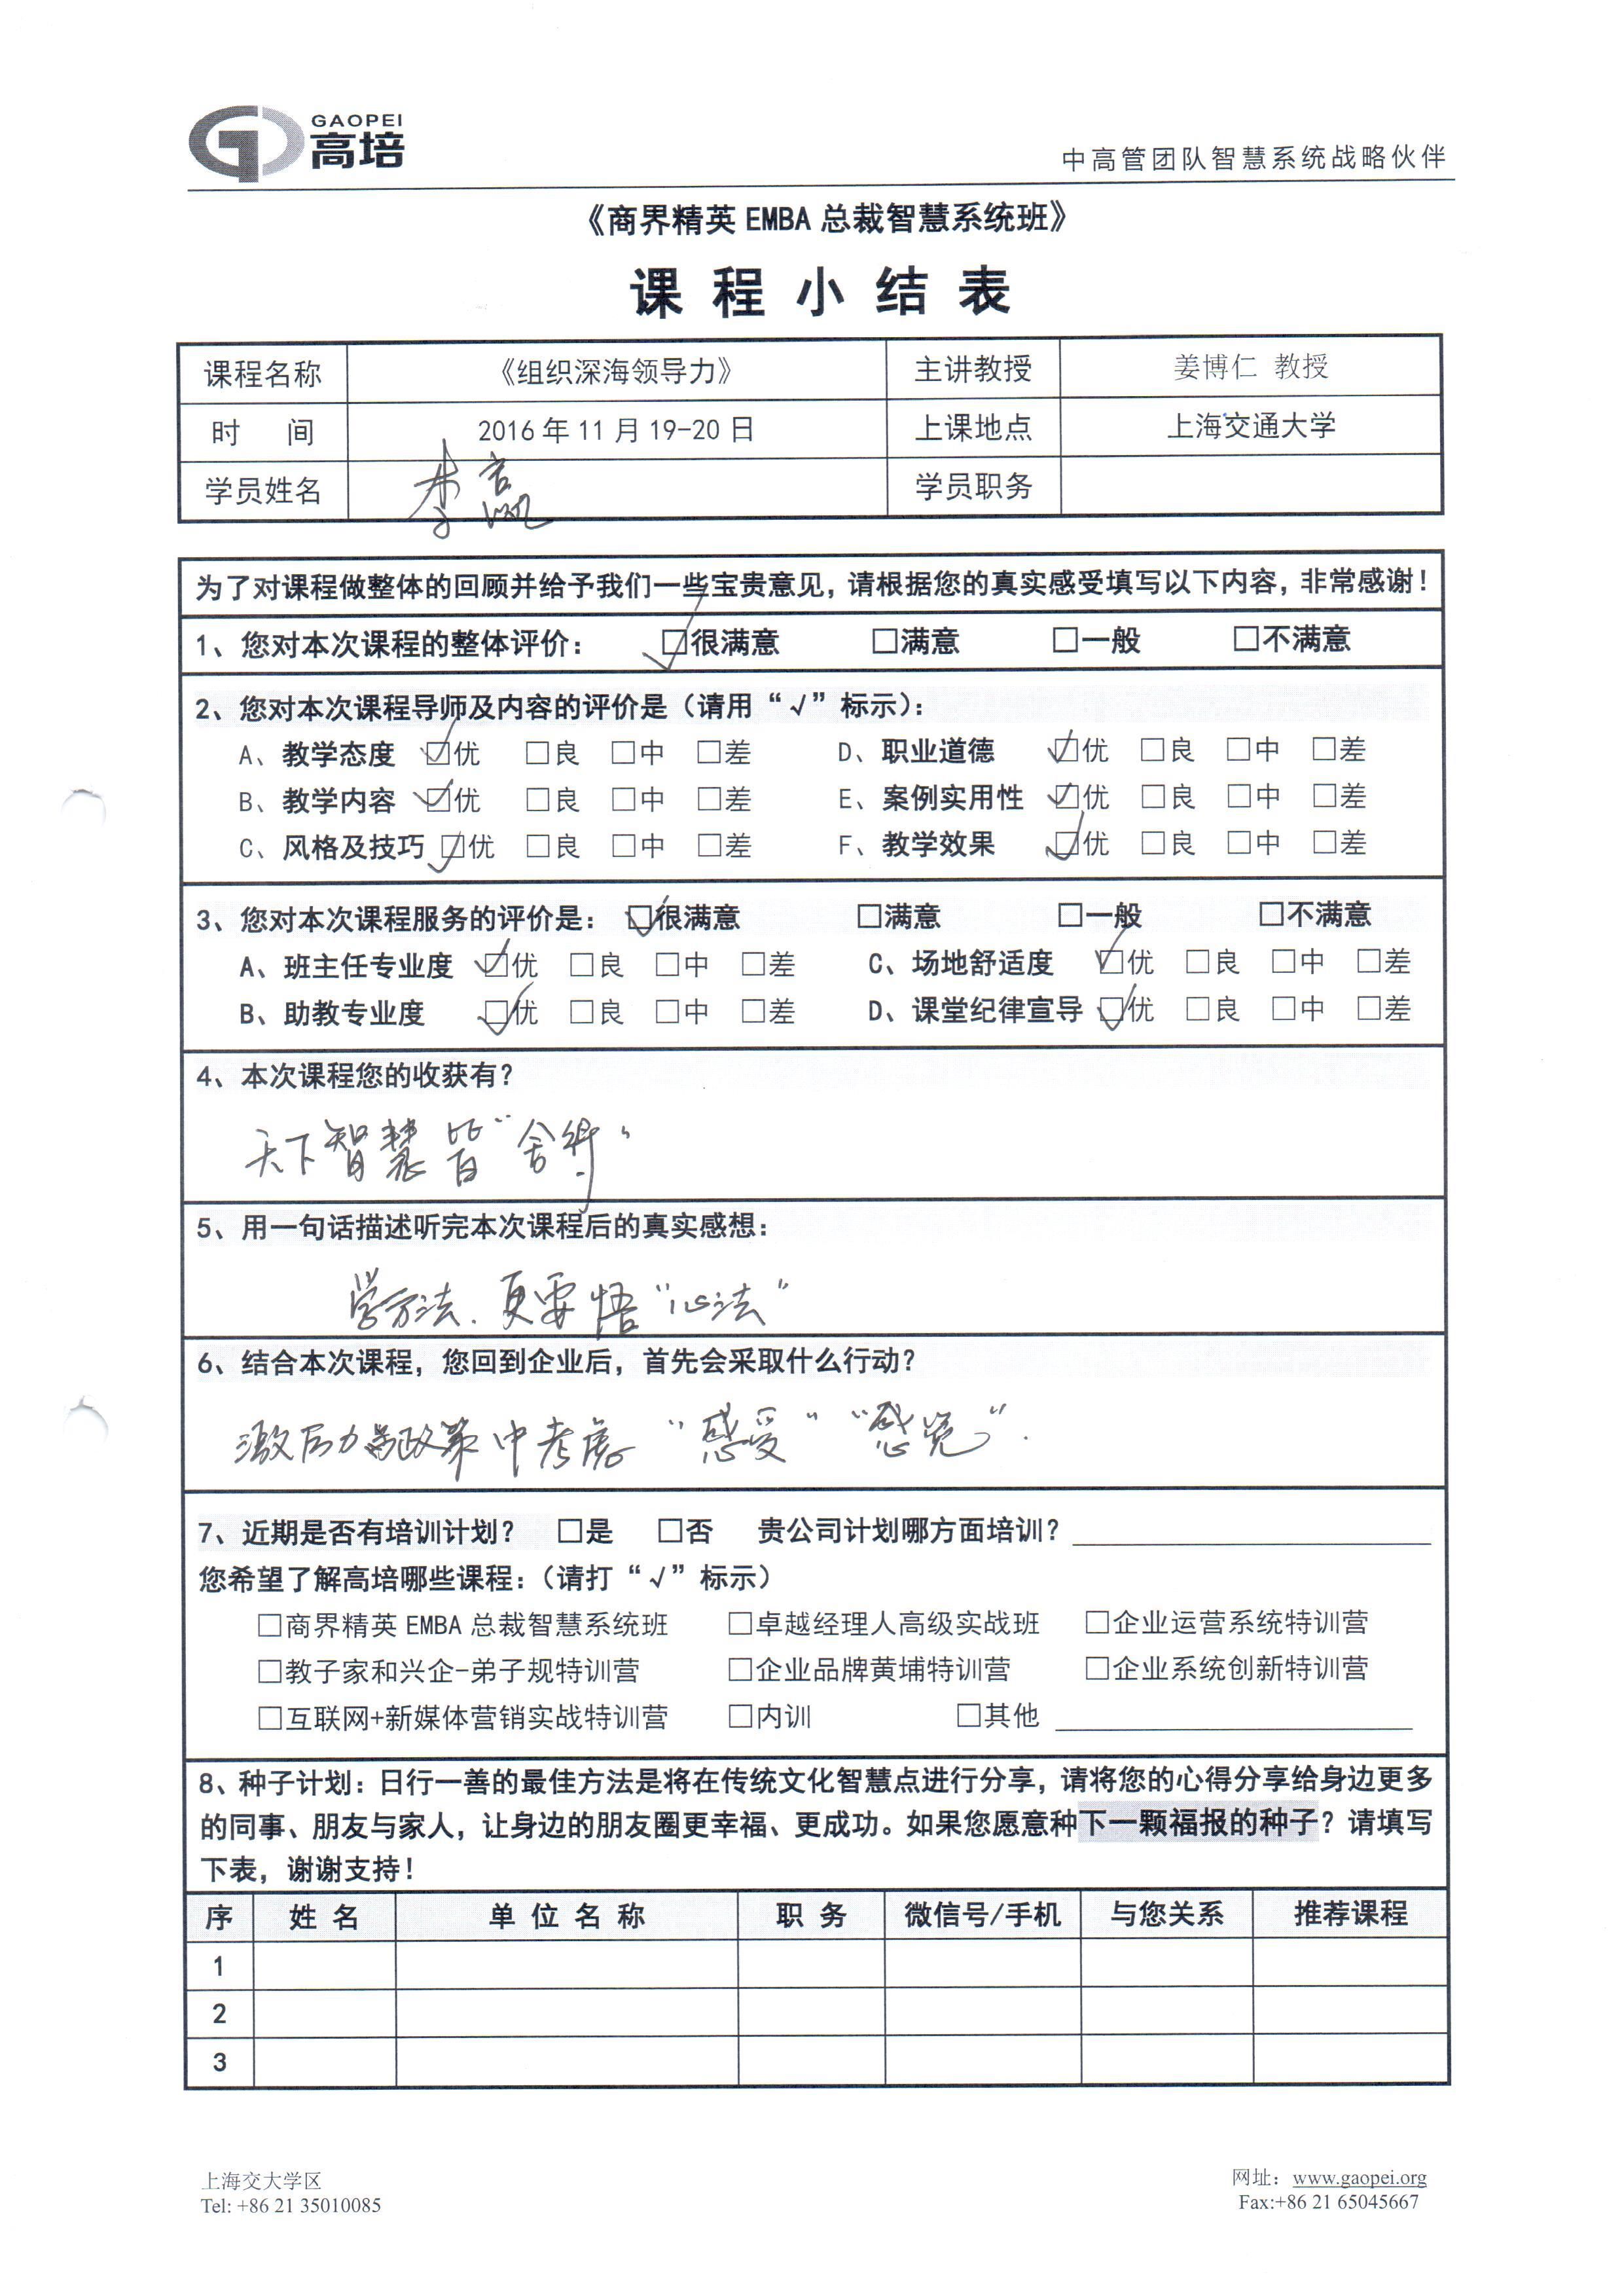 GAOPEI
高培
中高管团队智慧系统战略伙伴
《商界精英 EMBA 总裁智慧系统班》
课程小结表
课程名称 《组织深海领导力》 主讲教授 姜博仁 教授
时 间 2016 年 11 月 19-20 日 上课地点 上海交通大学
学员姓名 李 学员职务
为了对课程做整体的回顾并给予我们一些宝贵意见，请根据您的真实感受填写以下内容，非常感谢！
1、您对本次课程的整体评价： ☑很满意 □满意 □一般 □不满意
2、您对本次课程导师及内容的评价是（请用“√”标示）：
A、教学态度 ☑优 □良 □中 □差 D、职业道德 ☑优 □良 □中 □差
B、教学内容 ☑优 □良 □中 □差 E、案例实用性 ☑优 □良 □中 □差
C、风格及技巧 ☑优 □良 □中 □差 F、教学效果 ☑优 □良 □中 □差
3、您对本次课程服务的评价是： ☑很满意 □满意 □一般 □不满意
A、班主任专业度 ☑优 □良 □中 □差 C、场地舒适度 ☑优 □良 □中 □差
B、助教专业度 ☑优 □良 □中 □差 D、课堂纪律宣导 ☑优 □良 □中 □差
4、本次课程您的收获有？
天下智慧皆“舍得”
5、用一句话描述听完本次课程后的真实感想：
学方法．更要悟“心法”
6、结合本次课程，您回到企业后，首先会采取什么行动？
激励政策中考虑“感受”“感觉”．
7、近期是否有培训计划？ □是 □否 贵公司计划哪方面培训？
您希望了解高培哪些课程：（请打“√”标示）
□商界精英 EMBA 总裁智慧系统班 □卓越经理人高级实战班 □企业运营系统特训营
□教子家和兴企-弟子规特训营 □企业品牌黄埔特训营 □企业系统创新特训营
□互联网+新媒体营销实战特训营 □内训 □其他
8、种子计划：日行一善的最佳方法是将在传统文化智慧点进行分享，请将您的心得分享给身边更多
的同事、朋友与家人，让身边的朋友圈更幸福、更成功。如果您愿意种下一颗福报的种子？请填写
下表，谢谢支持！
序 姓 名 单 位 名 称 职 务 微信号/手机 与您关系 推荐课程
1
2
3
上海交大学区 网址：www.gaopei.org
Tel: +86 21 35010085 Fax:+86 21 65045667